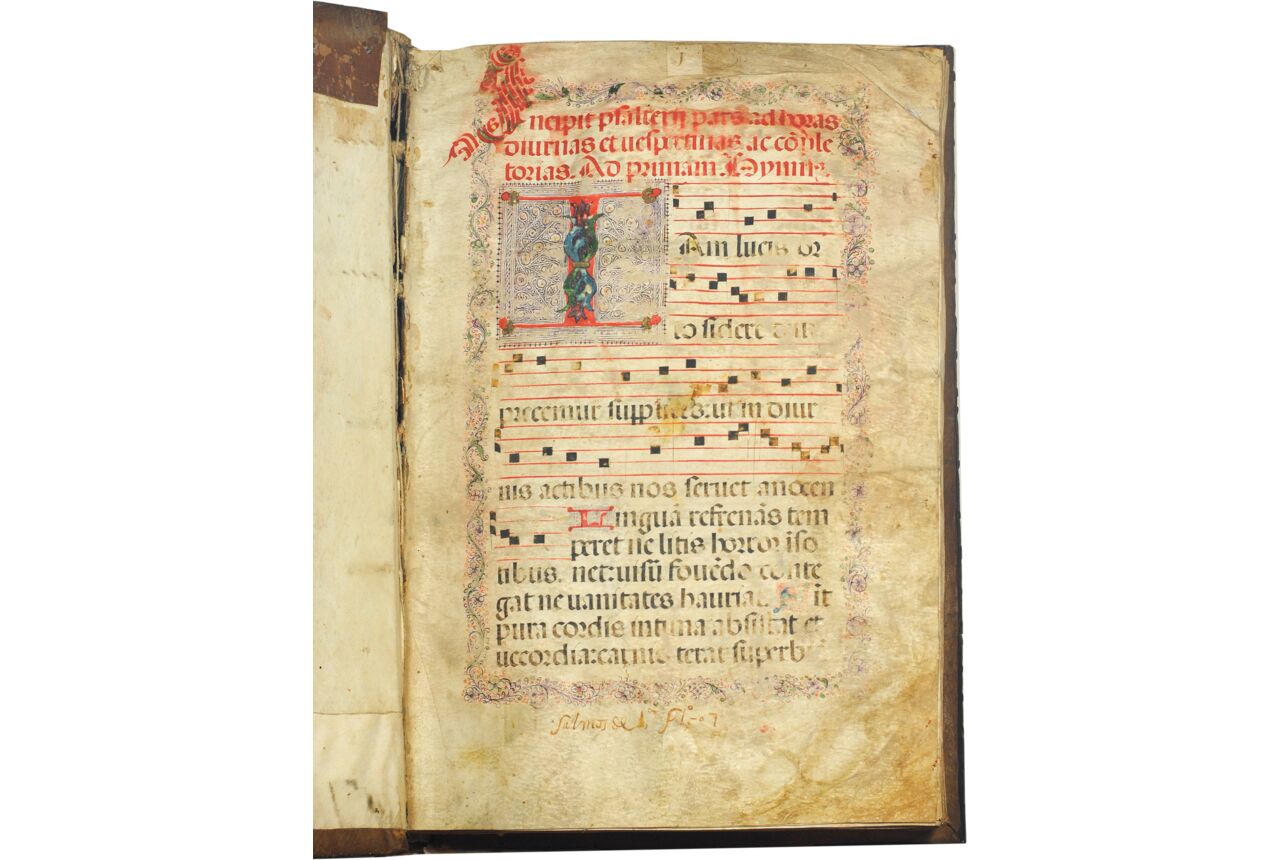 Incipit psalterij pars ad horas
diurnas et uespertinas ac cōple
torias. Ad primam. Hymnus.
IAm lucis or
to sidere
precemur supplices: ut in diur
nis actibus nos seruet a nocen
Linguā refrenās tem
peret ne litis horror īso
uisū fouēdo conte
gat ne uanitates hauriat. Sīt
pura cordis intima absistat et
uecordia: carnis terat superbi
salmos de